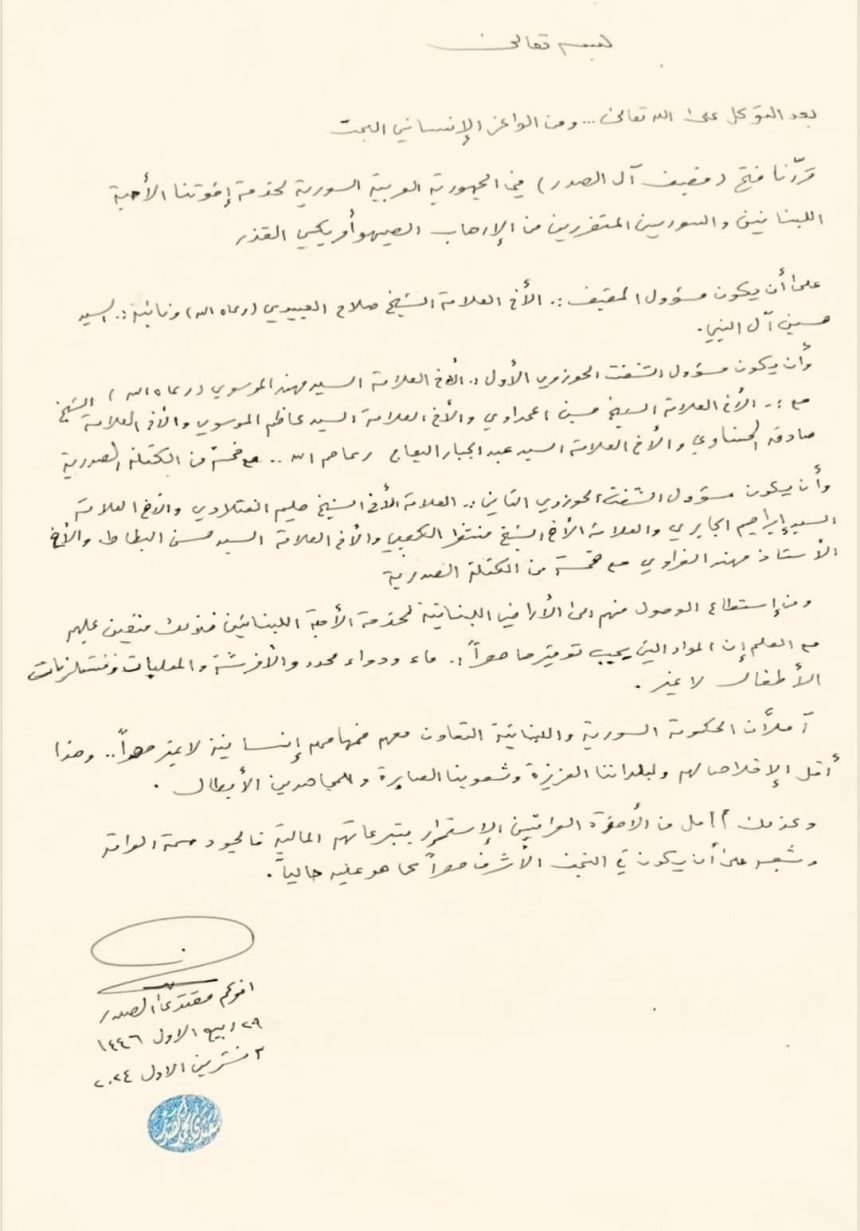 بسمه تعالى
بعد التوكل على الله تعالى... ومن الواعز الإنساني البحت
قررّنا فتح (مضيف آل الصدر) في الجمهورية العربية السورية لخدمة إخوتنا الأحبة
اللبنانيين والسوريين المتضررين من الإرهاب الصهيوأمريكي القذر
على أن يكون مسؤول المضيف :. الأخ العلامة الشيخ صلاح العبيدي (رعاه الله) ونائبه :. السيد
حسين آل النبي.
وأن يكون مسؤول الشفت الحوزوي الأول :. الأخ العلامة السيد مهند الموسوي (رعاه الله)
مع :. الأخ العلامة الشيخ حسين المحمداوي والأخ العلامة السيد كاظم الموسوي والأخ العلامة الشيخ
صادق الحسناوي والأخ العلامة السيد عبد الجبار رعاهم الله .. مع خمسة من الكتلة الصدرية
وأن يكون مسؤول الشفت الحوزوي الثاني :. العلامة الأخ الشيخ حليم الفتلاوي والأخ العلامة
السيد إبراهيم الجابري والعلامة الأخ الشيخ الكعبي والأخ العلامة السيد حسن البطاط والأخ
الأستاذ مهند الغراوي مع خمسة من الكتلة الصدرية
ومن إستطاع الوصول منهم الى الأراضي اللبنانية لخدمة الأحبة اللبنانيين فذلك متعين عليهم
مع العلم إن المواد التي يجب توفيرها حصراً :. ماء ودواء محدد والأفرشة والمعلبات ومستلزمات
الأطفال لا غير.
آملاً أن الحكومة السورية واللبنانية التعاون معهم فمهامهم إنسانية لا غير حصراً.. وهذا
أقل الإخلاص لهم ولبلداننا العزيزة وشعوبنا الصابرة وللمجاهدين الأبطال.
وعند ذلك آمل من الأخوة العراقيين الإستمرار بتبرعاتهم المالية فالجود سمة العراق
وشعبه على أن يكون في النجف الأشرف حصراً كما هو عليه حالياً.
اخوكم مقتدى الصدر
٢٩ ربيع الاول ١٤٤٦
٣ تشرين الاول ٢٠٢٤